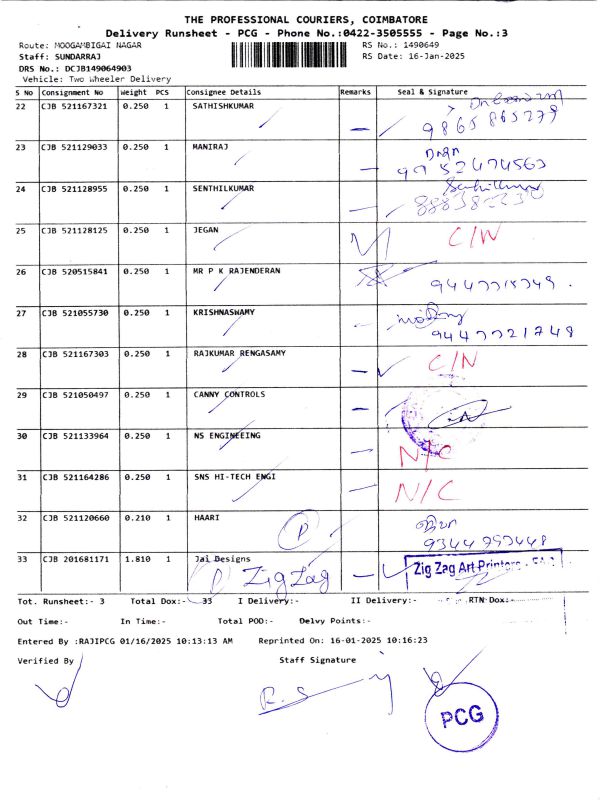 THE PROFESSIONAL COURIERS, COIMBATORE
Delivery Runsheet - PCG - Phone No.:0422-3505555 - Page No.:3
Route: MOOGAMBIGAI NAGAR
RS No.: 1490649
Staff: SUNDARRAJ
RS Date: 16-Jan-2025
DRS No.: DCJB149064903
Vehicle: Two Wheeler Delivery
S No Consignment No Weight PCS Consignee Details Remarks Seal & Signature
22 CJB 521167321 0.250 1 SATHISHKUMAR
9865865279
23 CJB 521129033 0.250 1 MANIRAJ
24 CJB 521128955 0.250 1 SENTHILKUMAR
25 CJB 521128125 0.250 1 JEGAN C/N
26 CJB 520515841 0.250 1 MR P K RAJENDERAN
27 CJB 521055730 0.250 1 KRISHNASWAMY
28 CJB 521167303 0.250 1 RAJKUMAR RENGASAMY C/N
29 CJB 521050497 0.250 1 CANNY CONTROLS
30 CJB 521133964 0.250 1 NS ENGINEEING N/C
31 CJB 521164286 0.250 1 SNS HI-TECH ENGI N/C
32 CJB 521120660 0.210 1 HAARI P
33 CJB 201681171 1.810 1 Jai Designs
P Zig Zag Zig Zag Art Printers
Tot. Runsheet:- 3 Total Dox:- 33 I Delivery:- II Delivery:- RTN Dox:-
Out Time:- In Time:- Total POD:- Delvy Points:-
Entered By :RAJIPCG 01/16/2025 10:13:13 AM Reprinted On: 16-01-2025 10:16:23
Verified By Staff Signature
R.S
PCG